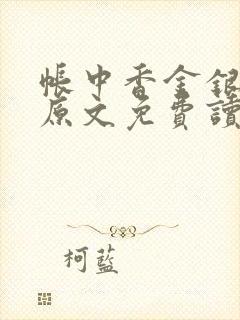 帳中香金銀
原文免費讀
柯藍